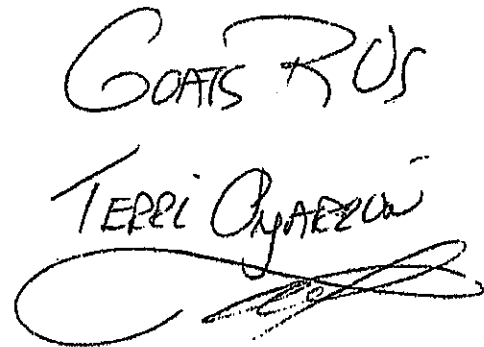 GOATS R US
TERRI OYARZUN